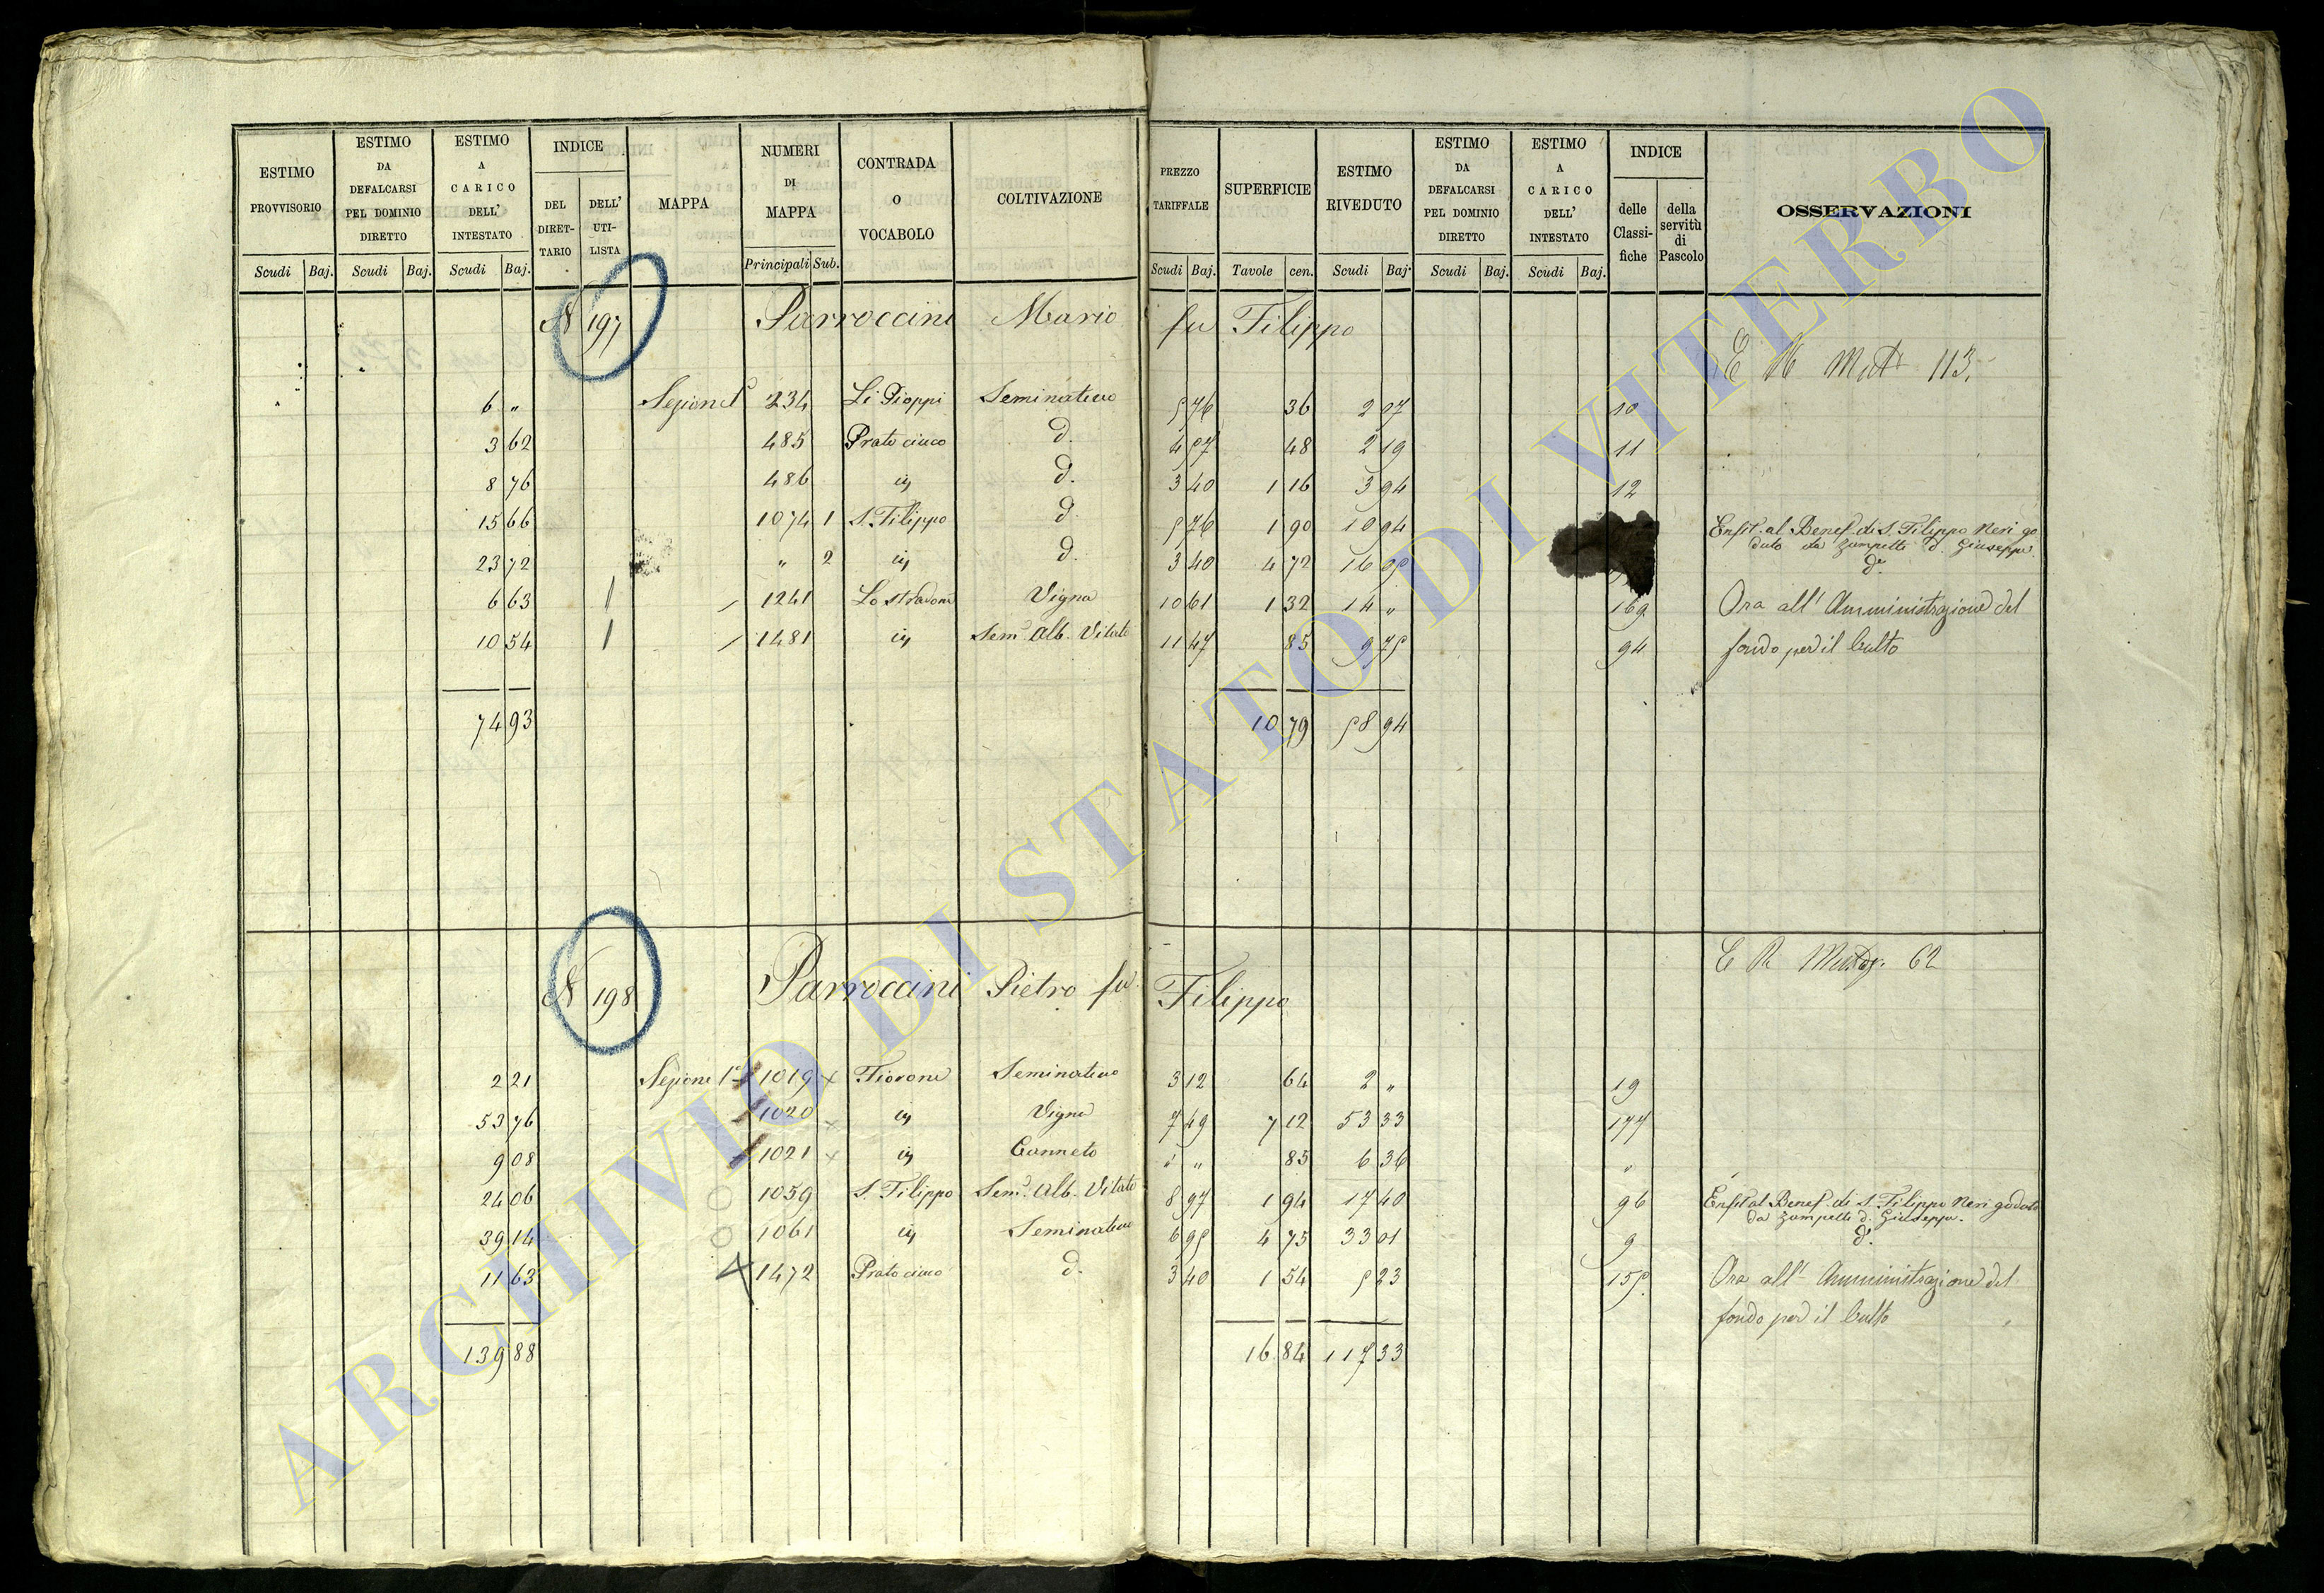 ESTIMO PROVVISORIO | ESTIMO DA DEFALCARSI PEL DOMINIO DIRETTO | ESTIMO A CARICO DELL' INTESTATO | INDICE | MAPPA | NUMERI DI MAPPA | CONTRADA O VOCABOLO | COLTIVAZIONE | PREZZO TARIFFALE | SUPERFICIE | ESTIMO RIVEDUTO | ESTIMO DA DEFALCARSI PEL DOMINIO DIRETTO | ESTIMO A CARICO DELL' INTESTATO | INDICE | OSSERVAZIONI
DEL DIRET-TARIO | DELL' UTI-LISTA | delle Classi-fiche | della servitù di Pascolo
Scudi | Baj. | Scudi | Baj. | Scudi | Baj. | Principali | Sub. | Scudi | Baj. | Tavole | cen. | Scudi | Baj. | Scudi | Baj. | Scudi | Baj.
N 197 Parroccini Mario fu Filippo
113.
6 " Sezione 234 Li Pioppi Seminativo 5 76 36 2 07 10
3 62 485 Prato cieco d. 4 57 48 2 19 11
8 76 486 in d. 3 40 1 16 3 94 12
15 66 1074 1 S. Filippo d 5 76 1 90 10 94 Enfit. al Benef. di S. Filippo Neri go
duto da Zampetti d. Giuseppe.
23 72 " 2 in d. 3 40 4 72 16 05 d.
6 63 1241 Lo stradone Vigna 10 61 1 32 14 " 169 Ora all' Amministrazione del
10 54 1481 in Sem. Alb. Vitato 11 47 85 9 75 94 fondo per il Culto
74 93 10 79 58 94
62
N 198 Parroccini Pietro fu Filippo
2 21 Sezione 1ª 1019 Fiorone Seminativo 3 12 64 2 " 19
53 76 1020 in Vigna 7 49 7 12 53 33 177
9 08 1021 in Canneto " " 85 6 36 "
24 06 1059 S. Filippo Sem. Alb. Vitato 8 97 1 94 17 40 96 Enfit al Benef. di S. Filippo Neri goduto
da Zampetti d. Giuseppe.
39 14 1061 in Seminativo 6 95 4 75 33 01 9 d.
11 63 1472 Prato cieco d. 3 40 1 54 5 23 155 Ora all' Amministrazione del
fondo per il Culto
139 88 16 84 117 33
ARCHIVIO DI STATO DI VITERBO